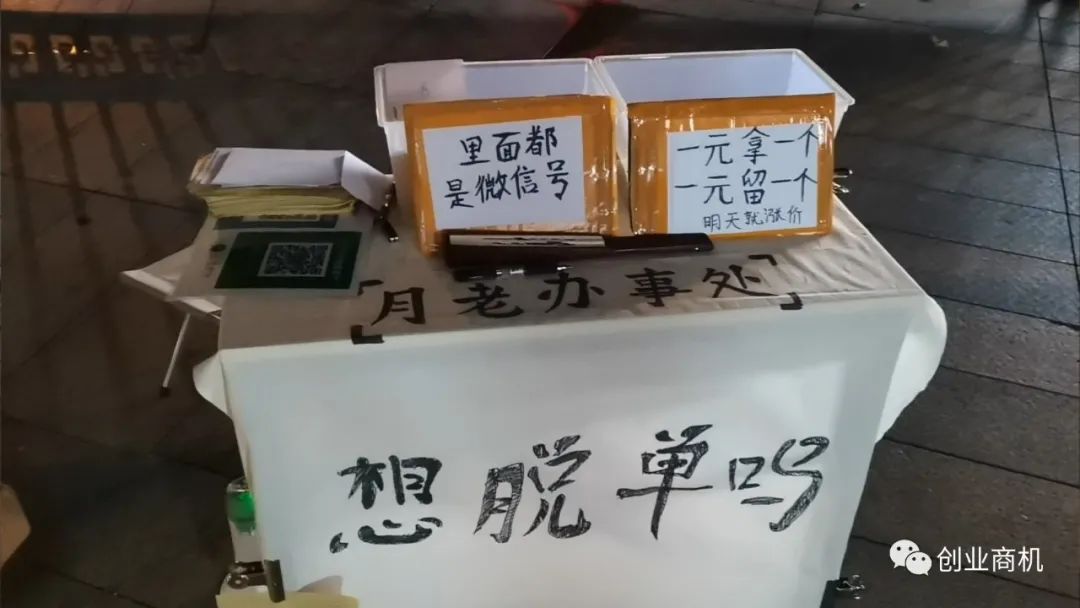 里面都
是微信号
一元拿一个
一元留一个
明天就涨价
「月老办事处」
想脱单吗
创业商机